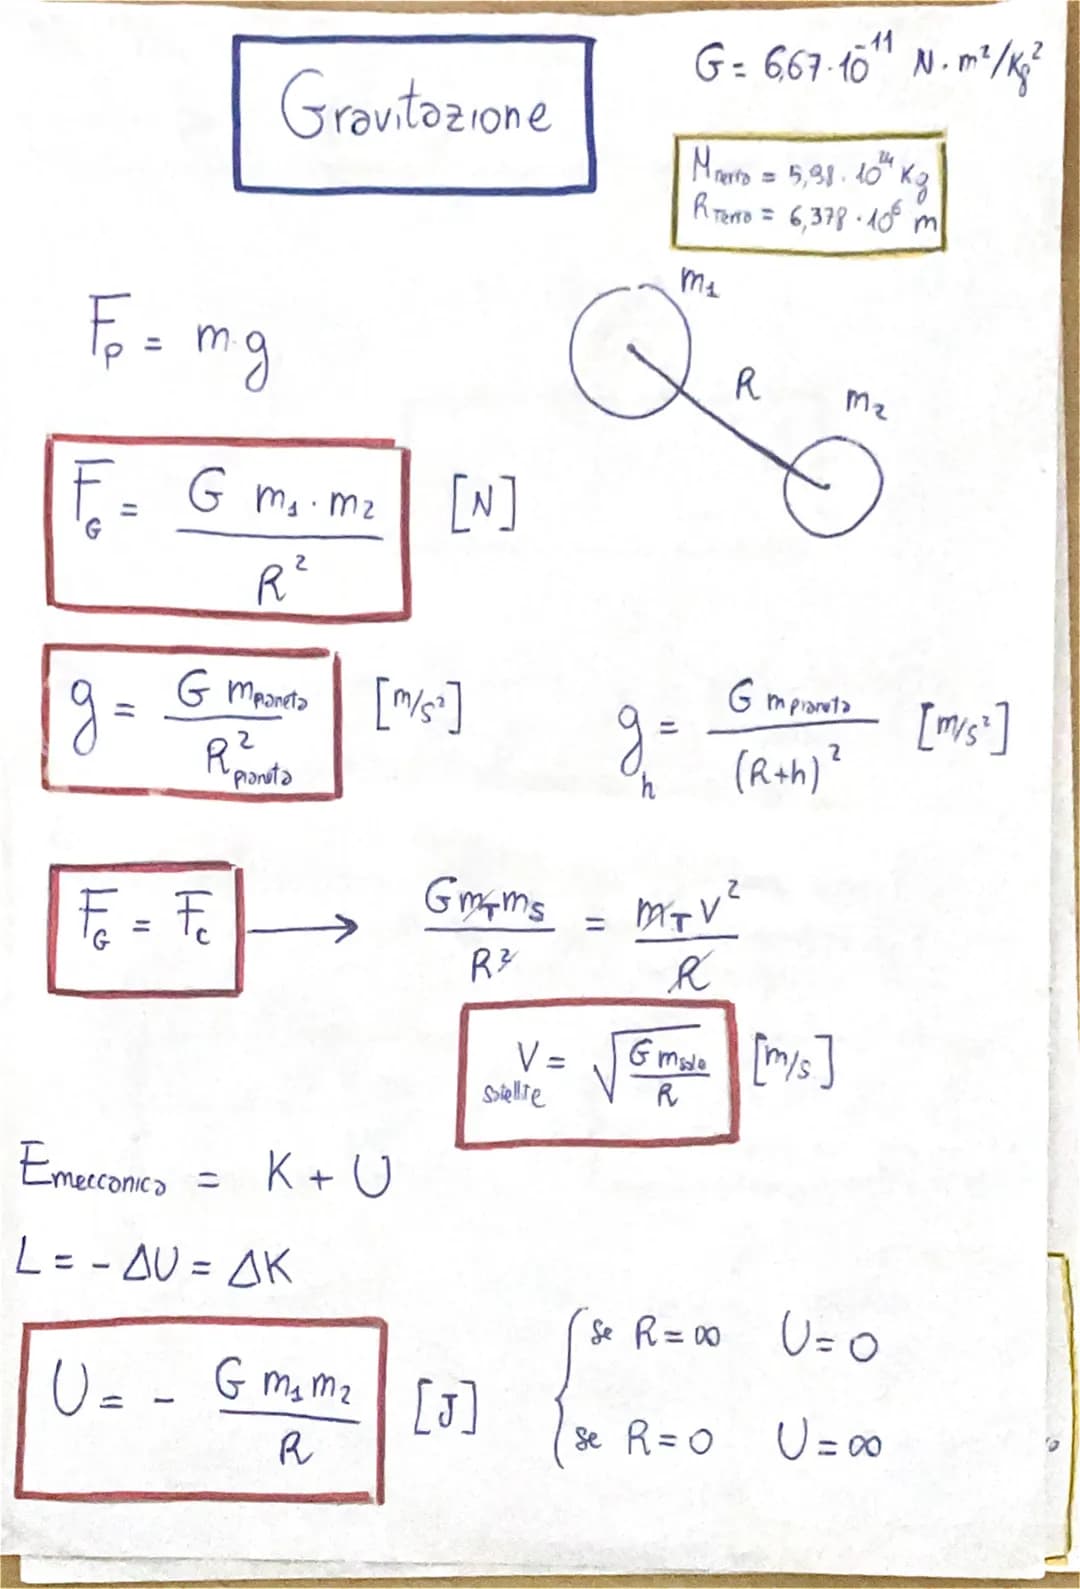 Gravitazione
G = 6,67·10⁻¹¹ N·m²/Kg²
M Terra = 5,98·10²⁴ Kg
R Terra = 6,378·10⁶ m
Fp = m·g
m₁
R
m₂
F_G = G m₁·m₂ / R² [N]
g = G m pianeta / R² pianeta [m/s²]
g_h = G m pianeta / (R+h)² [m/s²]
F_G = F_c → G m_T m_S / R² = m_T v² / R
V satellite = √(G m sole / R) [m/s]
E meccanica = K + U
L = - ΔU = ΔK
U = - G m₁ m₂ / R [J]
se R = ∞ U = 0
se R = 0 U = ∞